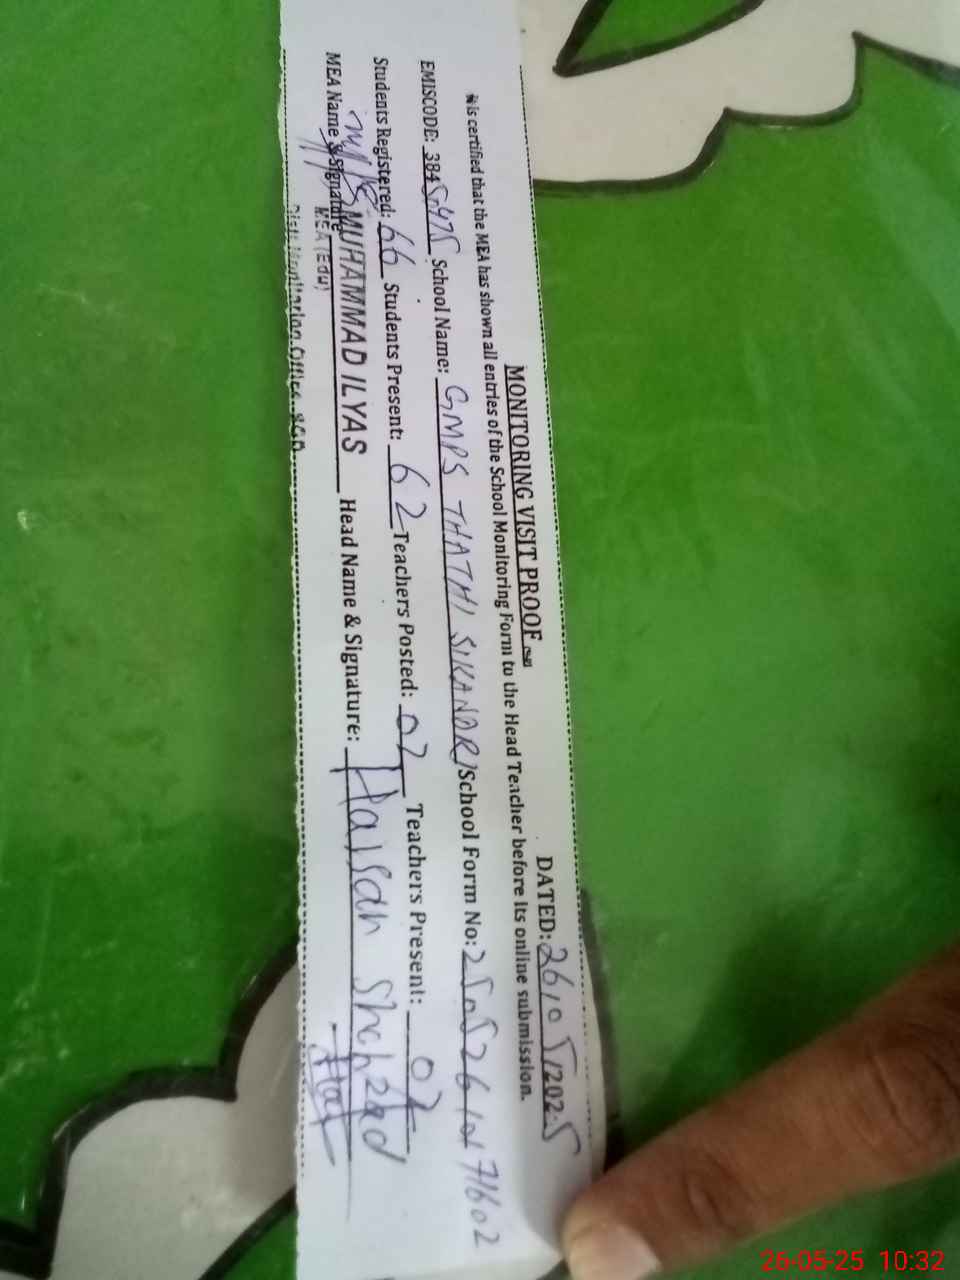 MONITORING VISIT PROOF
DATED: 26/05/2025
is certified that the MEA has shown all entries of the School Monitoring Form to the Head Teacher before its online submission.
EMISCODE: 384 School Name: GMPS THATHI SIKANDRI School Form No:
Students Registered: 66 Students Present: 62 Teachers Posted: 02 Teachers Present: 02
MEA Name & Signature MUHAMMAD ILYAS Head Name & Signature: Shahzad
MEA (Edu)
Distt: Monitoring Office, SGD
26-05-25 10:32